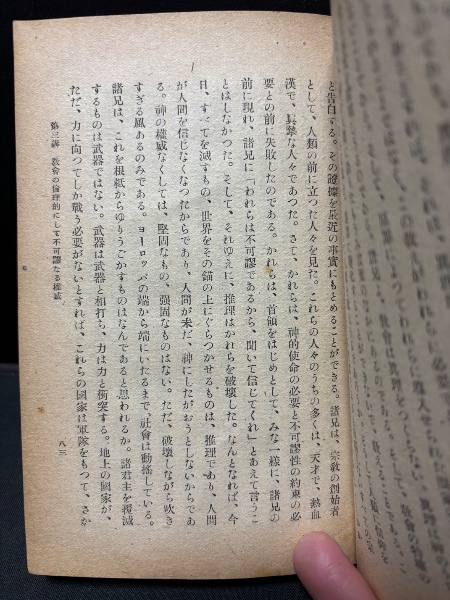 と告白する。その證據を最近の事實にもとめることができる。諸兄は、宗教の創始者
として、人類の前に立つた人々を見た。これらの人々のうちの多くは、天才で、熱血
漢で、眞摯な人々であつた。さて、かれらは、神的使命の必要と不可謬性の約束の必
要との前に失敗したのである。かれらは、首領をはじめとして、みな一様に、諸兄の
前に現れ、諸兄に「われらは不可謬であるから、聞いて信じてくれ」とあえて言うこ
とはしなかつた。そして、それゆえに、推理はかれらを破壊した。なんとなれば、今
日、すべてを滅すもの、世界をその錨の上にぐらつかせるものは、推理であり、人間
が人間を信じなくなつたからであり、人間が未だ、神にしたがおうとしないからであ
る。神の權威なくしては、堅固なもの、强固なものはない。ただ、破壊しながら吹き
すぎる風あるのみである。ヨーロッパの端から端にいたるまで、社會は動搖している。
諸兄は、これを根柢からゆりうごかすものはなんであると思われるか。諸君主を覆滅
するものは武器ではない。武器は武器と相打ち、力は力と衝突する。地上の國家が、
ただ、力に向つてしか戰う必要がないとすれば、これらの國家は軍隊をもつて、さか
第三講 敎會の倫理的にして不可謬なる權威
八三